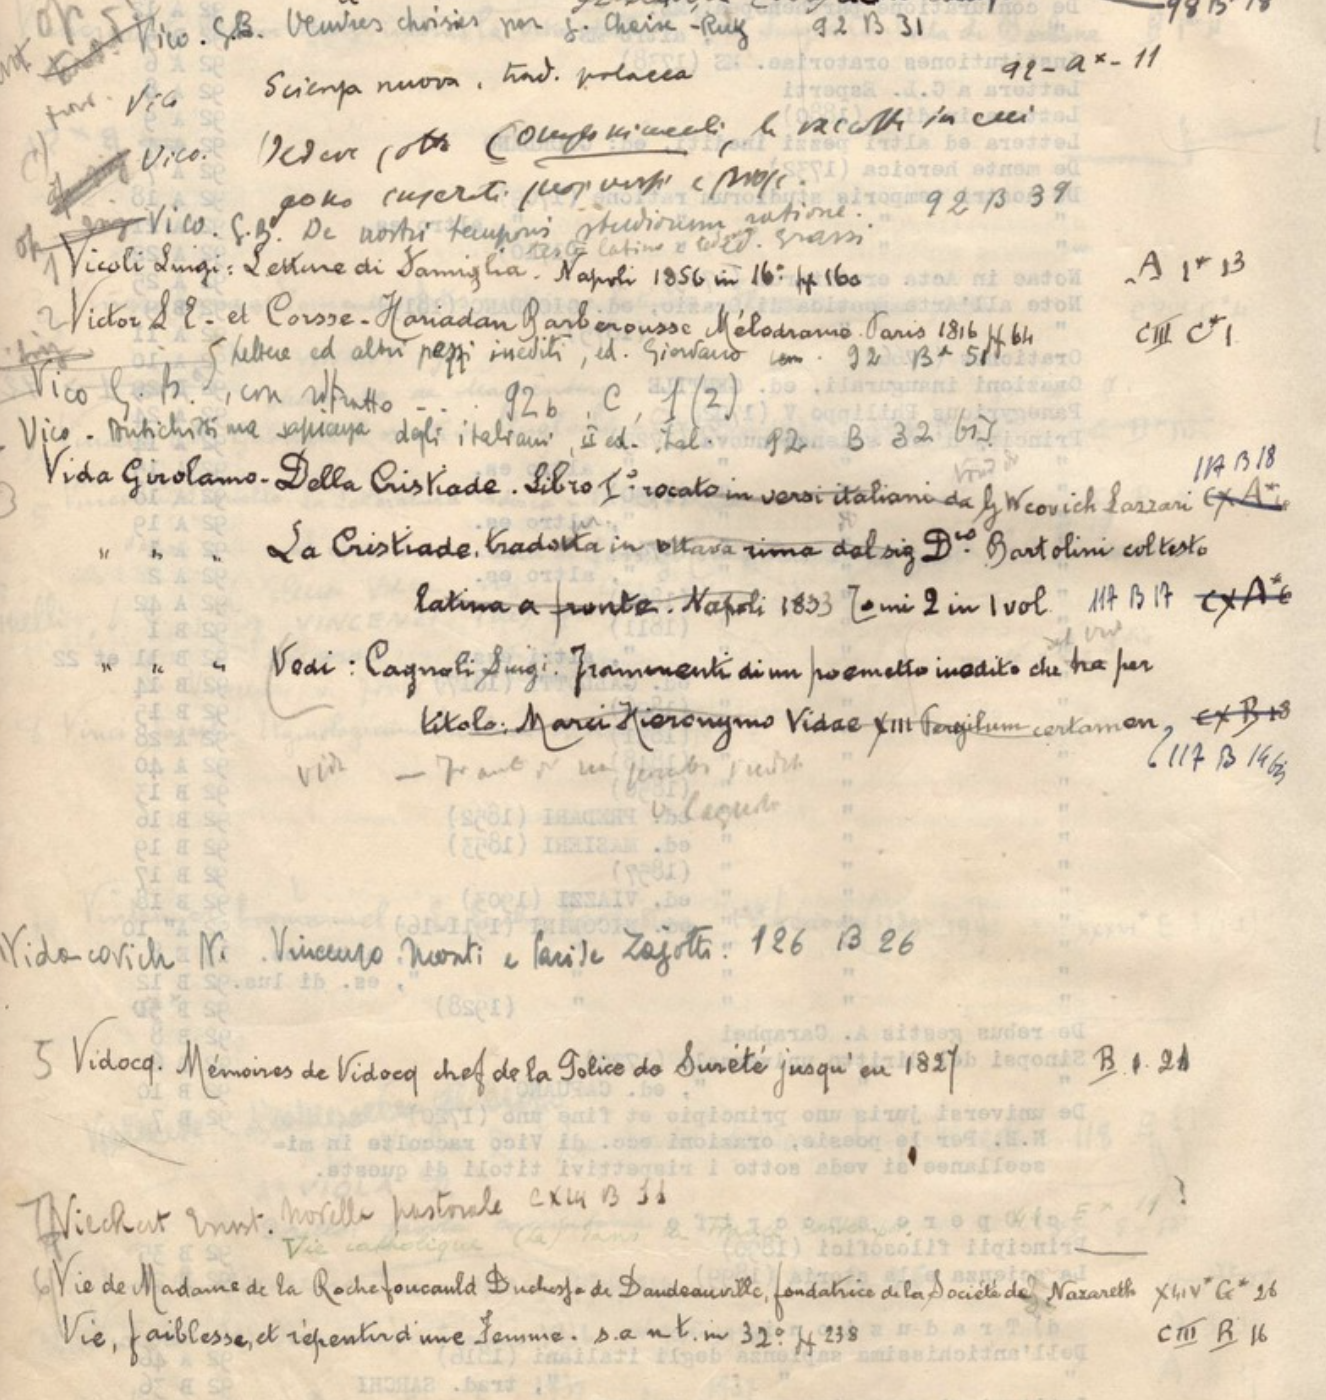 98 B 18
Vico. G.B. Oeuvres choisies par J. Chaix-Ruy 92 B 31
Vico Scienza nuova, trad. polacca 92-A*-11
Vico. Vedere sotto Componimenti, le raccolte in cui
sono inserti suoi versi e prose. 92 B 39
Vico. G.B. De nostri temporis studiorum ratione.
testo latino e ed. Grassi
1 Vicoli Luigi: Letture di Famiglia. Napoli 1856 in 16° pp 160 A 1* 13
2 Victor L E - et Corsse - Hariadan Barberousse Mélodrame. Paris 1816 pp 64 CIII C* 1
Lettere ed altri pezzi inediti, ed. Giordano 92 B* 51
Vico G. B., con ritratto - . . 92b, C, 1 (2)
Vico - Antichissima sapienza degli italiani, II ed. ital. 92 B 32 bis
3 Vida Girolamo - Della Cristiade. Libro I° recato in versi italiani da G Wcovich Lazzari 117 B 18
" " " La Cristiade, tradotta in ottava rima dal sig Dco. Bartolini col testo
latino a fronte. Napoli 1833 Tomi 2 in 1 vol 117 B 17 CX A* 6
" " " Vedi: Cagnoli Luigi. Frammenti di un poemetto inedito che ha per
titolo: Marci Hieronymo Vidae XIII Vergilum certamen, CX B 18
117 B 14 bis
v. Cagnoli
Vidacovich N. Vincenzo Monti e Paride Zajotti. 126 B 26
5 Vidocq. Mémoires de Vidocq chef de la Police de Sureté jusqu'en 1827 B 1. 21
7 Vieckert Ernst. Novella pastorale CXIII B 31 ?
Vie catholique (la) dans la
6 Vie de Madame de la Rochefoucauld Duchesse de Doudeauville, fondatrice de la Société de Nazareth XLIV* G* 26
Vie, faiblesse, et répentir d'une Femme. s.a n t. in 32° pp 238 CIII R 16